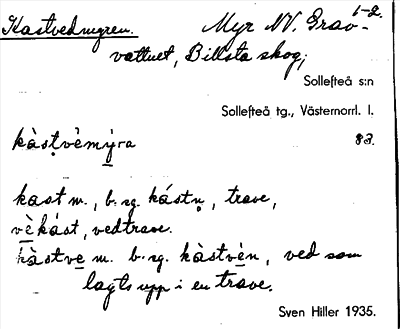 Kastvedmyren. Myr NV. Grav- 1-2.
vattnet, Billsta skog;
Sollefteå s:n
Sollefteå tg., Västernorrl. l.
kàstvèmýra 83.
kast m., b. sg. kástn, trave,
vèkást, vedtrave.
kàstve m. b. sg. kàstvèn, ved som
lagts upp i en trave.
Sven Hiller 1935.